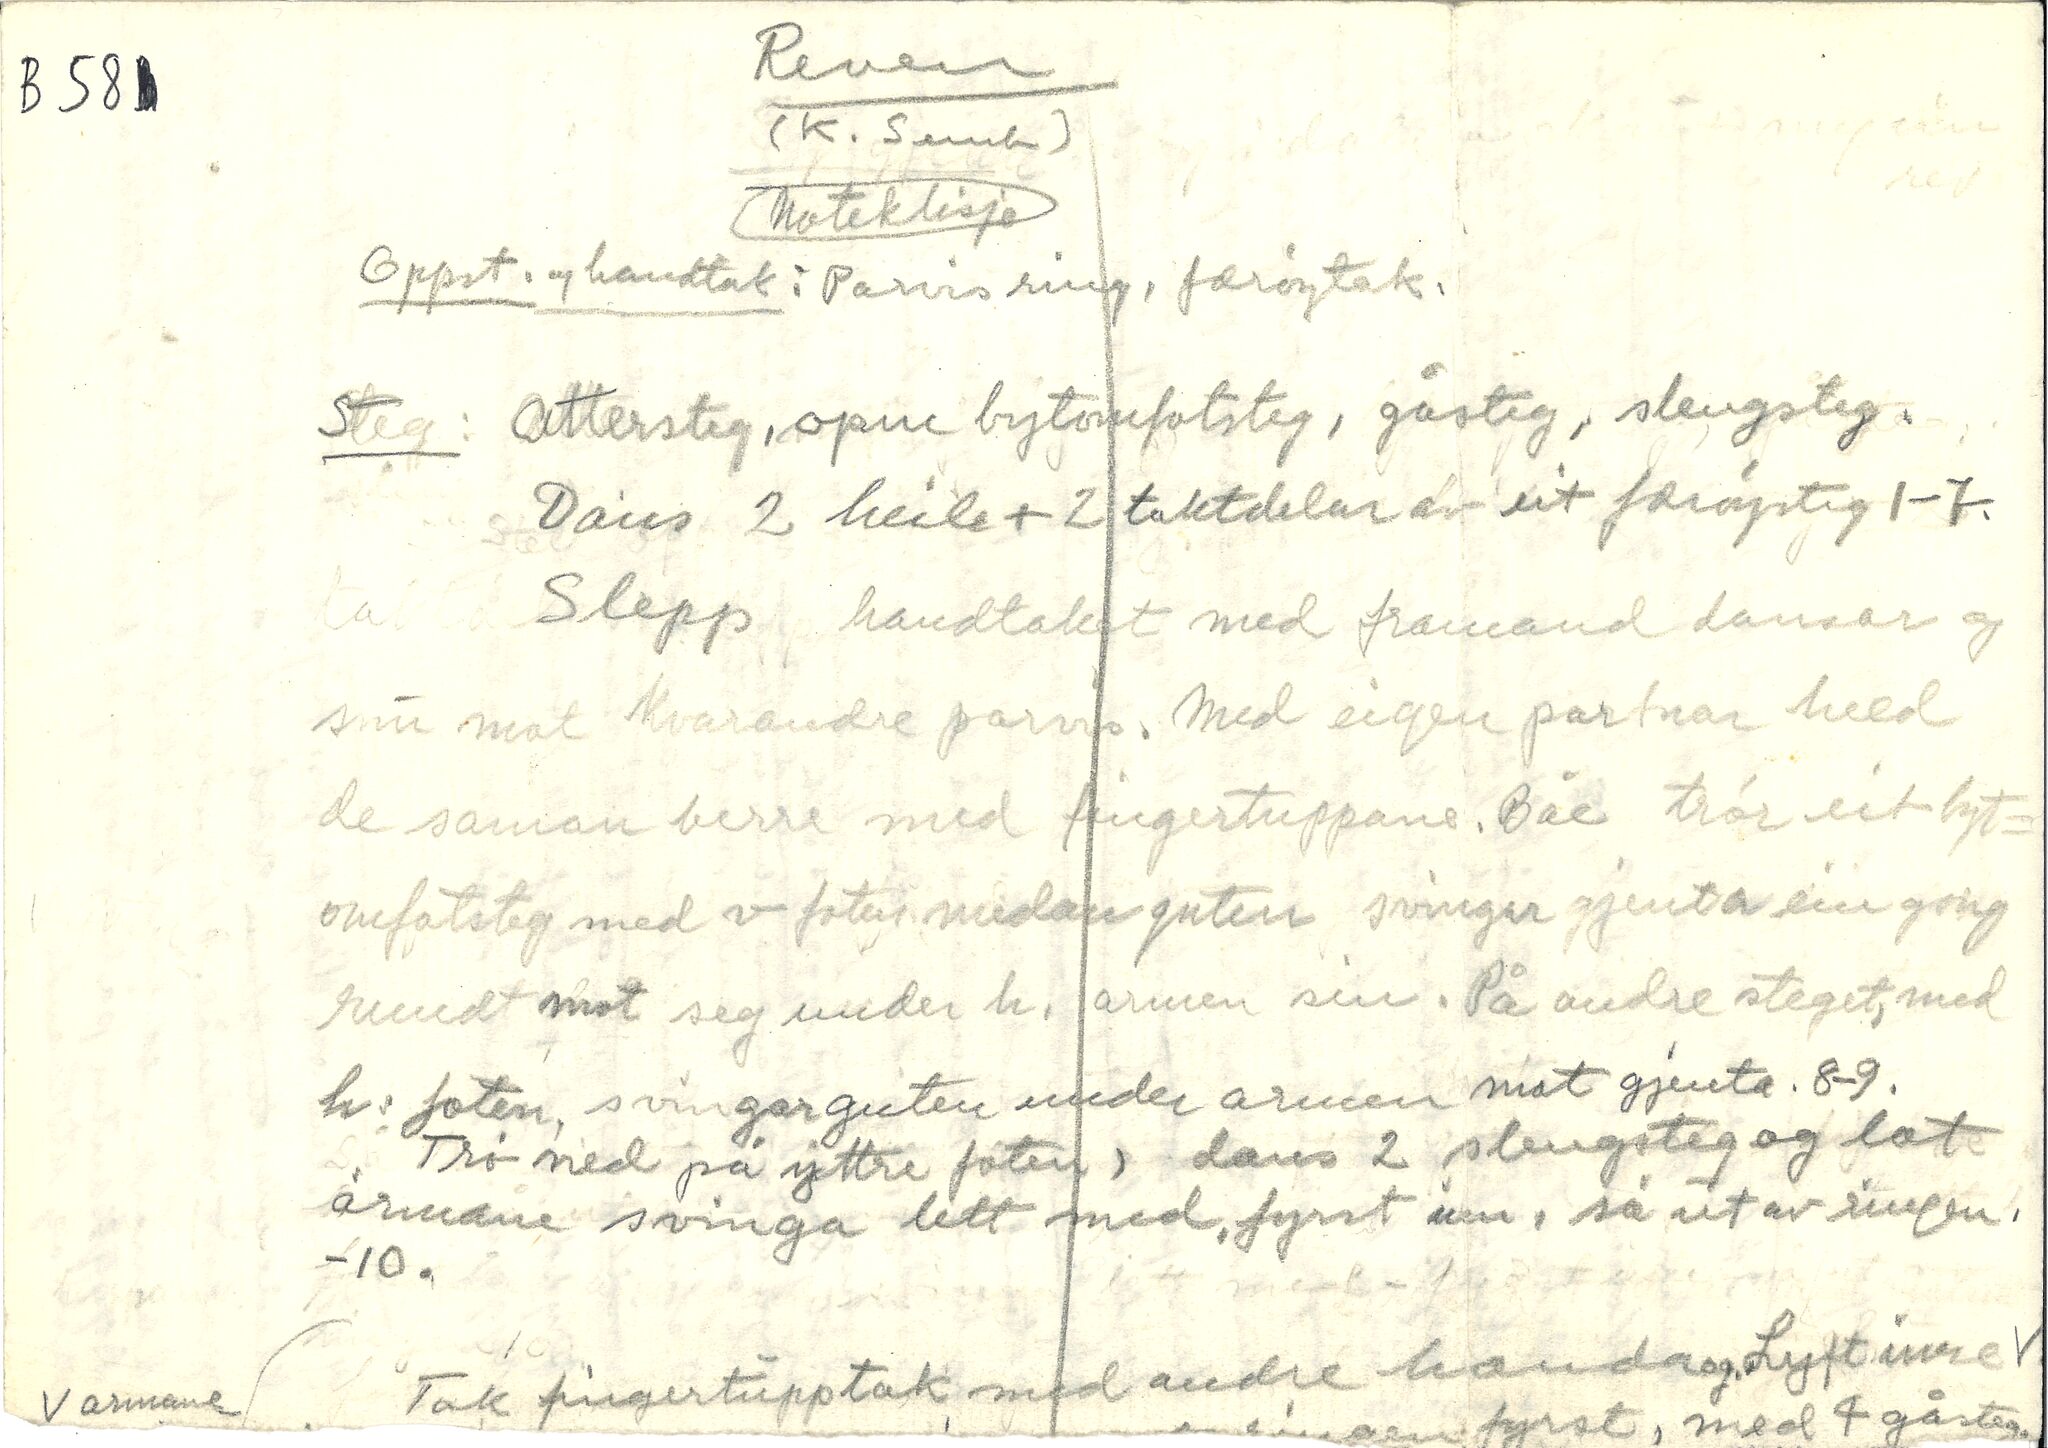 B 581
Reven
(K. Semb)
Noteklisje
Oppst. og handtak: Parvis ring, færøytak.
Steg: Attersteg, opne bytomfotsteg, gåsteg, slengsteg.
Dans 2 heile + 2 taktdelar av eit færøysteg 1-7.
Slepp handtaket med framand dansar og
snu mot kvarandre parvis. Med eigen partnar held
de saman berre med fingertuppane. Båe trør eit byt=
omfotsteg med v foten medan guten svingar gjenta ein gong
rundt mot seg under h. armen sin. På andre steget, med
h: foten, svingar guten under armen mot gjenta. 8-9.
Trø ned på yttre foten, dans 2 slengsteg og lat
armane svinga lett med, fyrst inn, så ut av ringen.
-10.
Tak fingertupptak med andre handa og. Lyft inre V
V armane
fyrst, med 4 gåsteg